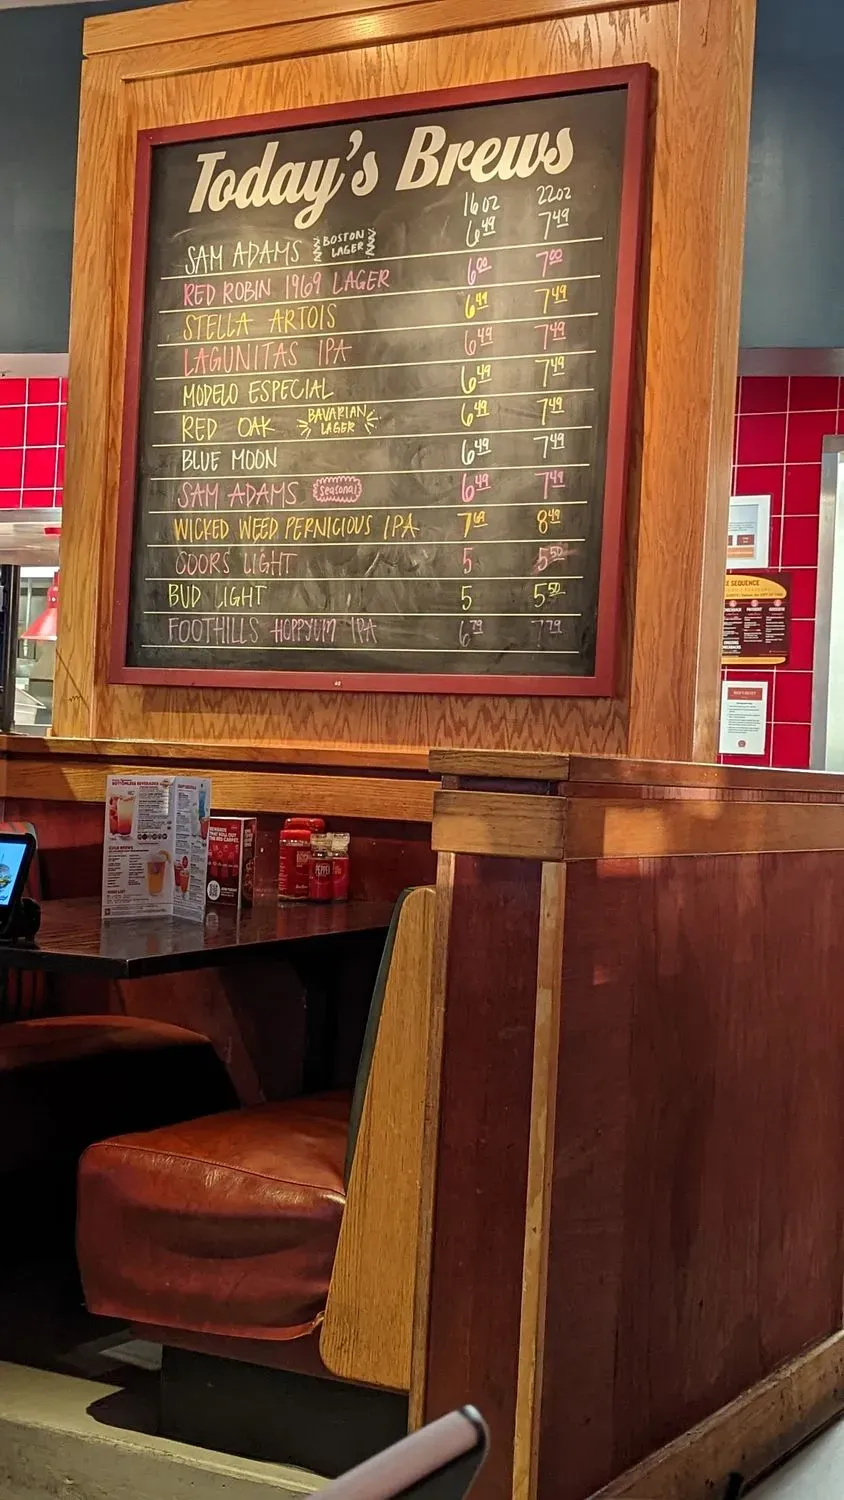 Today's Brews
16oz 22oz
SAM ADAMS BOSTON LAGER 6.49 7.49
RED ROBIN 1969 LAGER 6.00 7.00
STELLA ARTOIS 6.49 7.49
LAGUNITAS IPA 6.49 7.49
MODELO ESPECIAL 6.49 7.49
RED OAK BAVARIAN LAGER 6.49 7.49
BLUE MOON 6.49 7.49
SAM ADAMS Seasonal 6.49 7.49
WICKED WEED PERNICIOUS IPA 7.69 8.49
COORS LIGHT 5 5.50
BUD LIGHT 5 5.50
FOOTHILLS HOPPYUM IPA 6.79 7.79
SEQUENCE
BOTTOMLESS BEVERAGES
PEPPER